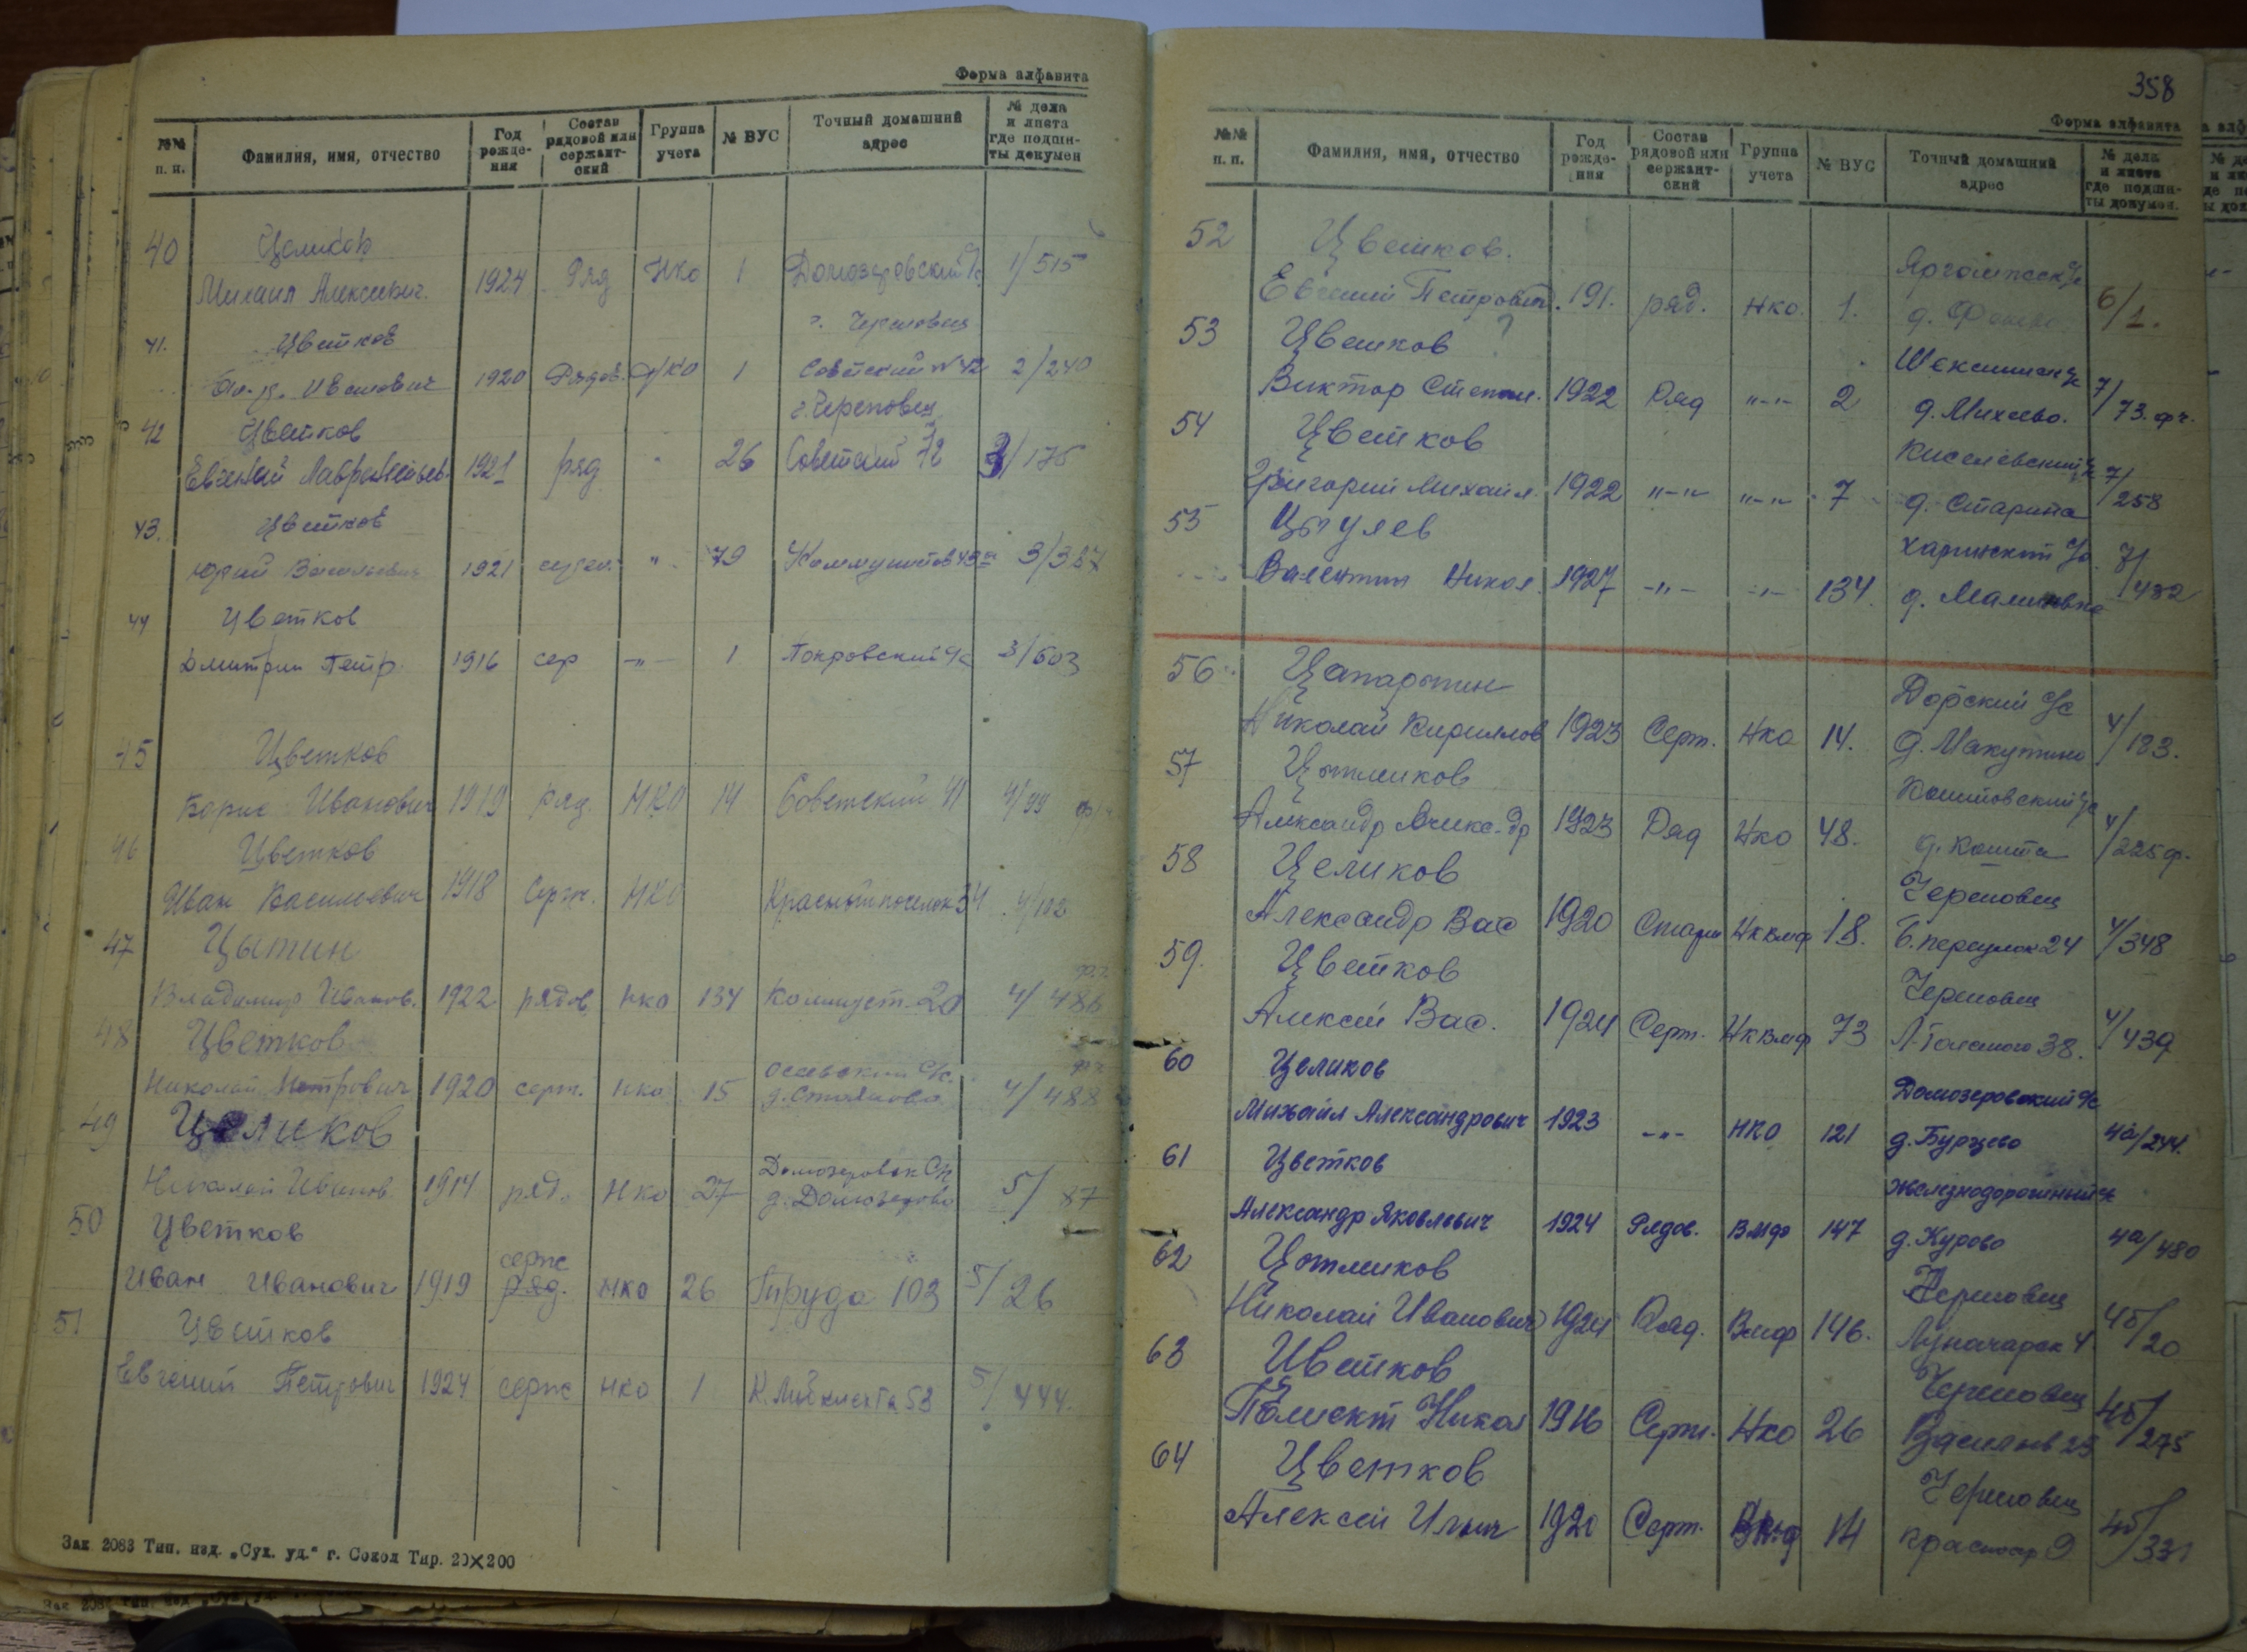 Форма алфавита
№№ п. п. Фамилия, имя, отчество Год рожде- ния Состав рядовой или сержант- ский Группа учета № ВУС Точный домашний адрес № дела и листа где подши- ты докумен
40 Целиков
Михаил Алексеевич. 1924 Ряд НКО 1 Домозеровский с/с 1/515
41. Цветков г. Череповец
Иванович 1920 Рядов. НКО 1 Советский №42 2/240
42 Цветков г. Череповец
Евгений Лаврентьев. 1921 ряд " 26 Советский 72 3/175
43. Цветков
Юрий Васильевич 1921 " 79 Коммунистов 43а 3/387
44 Цветков
Дмитрий Петр. 1916 сер -"- 1 Покровский с/с 3/603
45 Цветков
Борис Иванович 1919 ряд. НКО 14 Советский 41 4/99
46 Цветков
Иван Васильевич 1918 Серж. НКО Красный поселок 34 4/102
47 Цытин
Владимир Иванов. 1922 рядов НКО 134 Коммуст. 20 4/486
48 Цветков
Николай Петрович 1920 серж. НКО 15 с/с. д. 4/488
49 Целиков
Николай Иванов 1914 ряд. НКО 27 Домозеровск с/с д. Домозерово 5/87
50 Цветков
серж
Иван Иванович 1919 ряд. НКО 26 Труда 103 5/26
51 Цветков
Евгений Петрович 1924 серж НКО 1 К. Либкнехта 53 5/444.
Зак 2083 Тип. изд. „Сух. уд.“ г. Сокол Тир. 20×200
358
Форма алфавита
№№ п. п. Фамилия, имя, отчество Год рожде- ния Состав рядовой или сержант- ский Группа учета № ВУС Точный домашний адрес № дела и листа где подши- ты докумен.
52 Цветков. Яргомжск с/с
Евгений Петрович. 191. ряд. НКО. 1. д. 6/1.
53 Цветков ? Шекснинск с/с
Виктор Степан. 1922 Ряд "-" 2 д. Михеево. 7/73. фч.
54 Цветков Киселевский с/с
Григорий Михайл. 1922 "-" "-" 7 д. Старина 7/258
55 Цыгулев Харинский с/с
Валентин Никол. 1927 -"- -"- 134. д. Малиновка 7/432
56. Цапарыгин Дорский с/с
Николай Кириллов 1923 Серж. НКО 14. д. Макутино 4/183.
57 Цытликов Коштовский с/с
Александр Алекс-др 1923 Ряд НКО 48. д. Кошта 4/225 ф.
58 Целиков Череповец
Александр Вас 1920 Старш НКВмф 18. Б. переулок 24 4/348
59. Цветков Череповец
Алексей Вас. 1924 Серж. НКВмф 73 Л-Толстого 38. 4/439
60 Целиков Домозеровский с/с
Михаил Александрович 1923 -"- НКО 121 д. Бурцево 4а/244.
61 Цветков Железнодорожный с/с
Александр Яковлевич 1924 Рядов. ВМФ 147 д. Курово 4а/480
62 Цытликов Череповец
Николай Иванович 1924 Ряд. Вмф 146. Луначарск 4 4б/20
63 Цветков Череповец
Николай 1916 Серж. НКО 26 25 4б/275
64 Цветков Череповец
Алексей Ильич 1920 Серж. 14 Красноар 9 4б/331